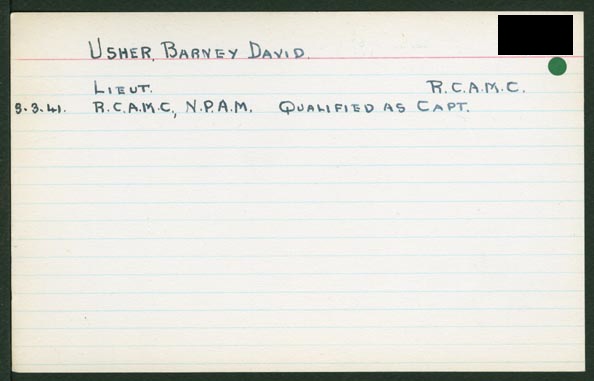 USHER, BARNEY DAVID.
LIEUT. R.C.A.M.C.
3.3.41. R.C.A.M.C., N.P.A.M. QUALIFIED AS CAPT.